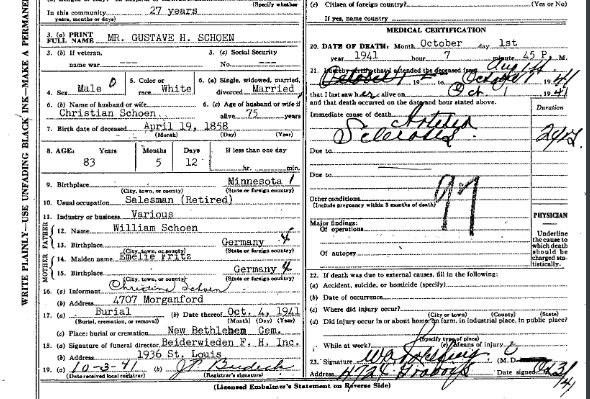 In this community 27 years
(Specify whether
years, months or days)
3. (a) PRINT FULL NAME MR. GUSTAVE H. SCHOEN
3. (b) If veteran, name war ---
3. (c) Social Security No. ---
4. Sex Male 0
5. Color or race White
6. (a) Single, widowed, married, divorced Married
6. (b) Name of husband or wife Christian Schoen
6. (c) Age of husband or wife if alive 75 years
7. Birth date of deceased April 19, 1858
(Month) (Day) (Year)
8. AGE: Years Months Days If less than one day
83 5 12 hr. min.
9. Birthplace Minnesota 1
(City, town, or county) (State or foreign country)
10. Usual occupation Salesman (Retired)
11. Industry or business Various
FATHER
12. Name William Schoen
13. Birthplace Germany 4
(City, town, or county) (State or foreign country)
MOTHER
14. Maiden name Emelie Fritz
15. Birthplace Germany 4
(City, town, or county) (State or foreign country)
16. (a) Informant Christine Schoen
(b) Address 4707 Morganford
17. (a) Burial (b) Date thereof Oct. 4, 1941
(Burial, cremation, or removal) (Month) (Day) (Year)
(c) Place: burial or cremation New Bethlehem Cem.
18. (a) Signature of funeral director Beiderwieden F. H. Inc.
(b) Address 1936 St. Louis
19. (a) 10-3-41 (b)
(Date received local registrar) (Registrar's signature)
WRITE PLAINLY—USE UNFADING BLACK INK—MAKE A PERMANE
(e) Citizen of foreign country? (Yes or No)
If yes, name country
MEDICAL CERTIFICATION
20. DATE OF DEATH: Month October day 1st
year 1941 hour 7 minute 45 P. M.
21. I hereby certify that I attended the deceased from Aug 14
October 1 1941
that I last saw her alive on Oct. 1 1941
and that death occurred on the date and hour stated above.
Duration
Immediate cause of death Arterio
Sclerosis
Due to
Due to
Other conditions
(Include pregnancy within 3 months of death)
97
Major findings:
Of operations
Of autopsy
PHYSICIAN
Underline the cause to which death should be charged statistically.
22. If death was due to external causes, fill in the following:
(a) Accident, suicide, or homicide (specify)
(b) Date of occurrence
(c) Where did injury occur?
(City or town) (County) (State)
(d) Did injury occur in or about home, on farm, in industrial place, in public place?
(Specify type of place)
While at work? (e) Means of injury
23. Signature (M. D.
Address 4724 Gravois Date signed
(Licensed Embalmer's Statement on Reverse Side)